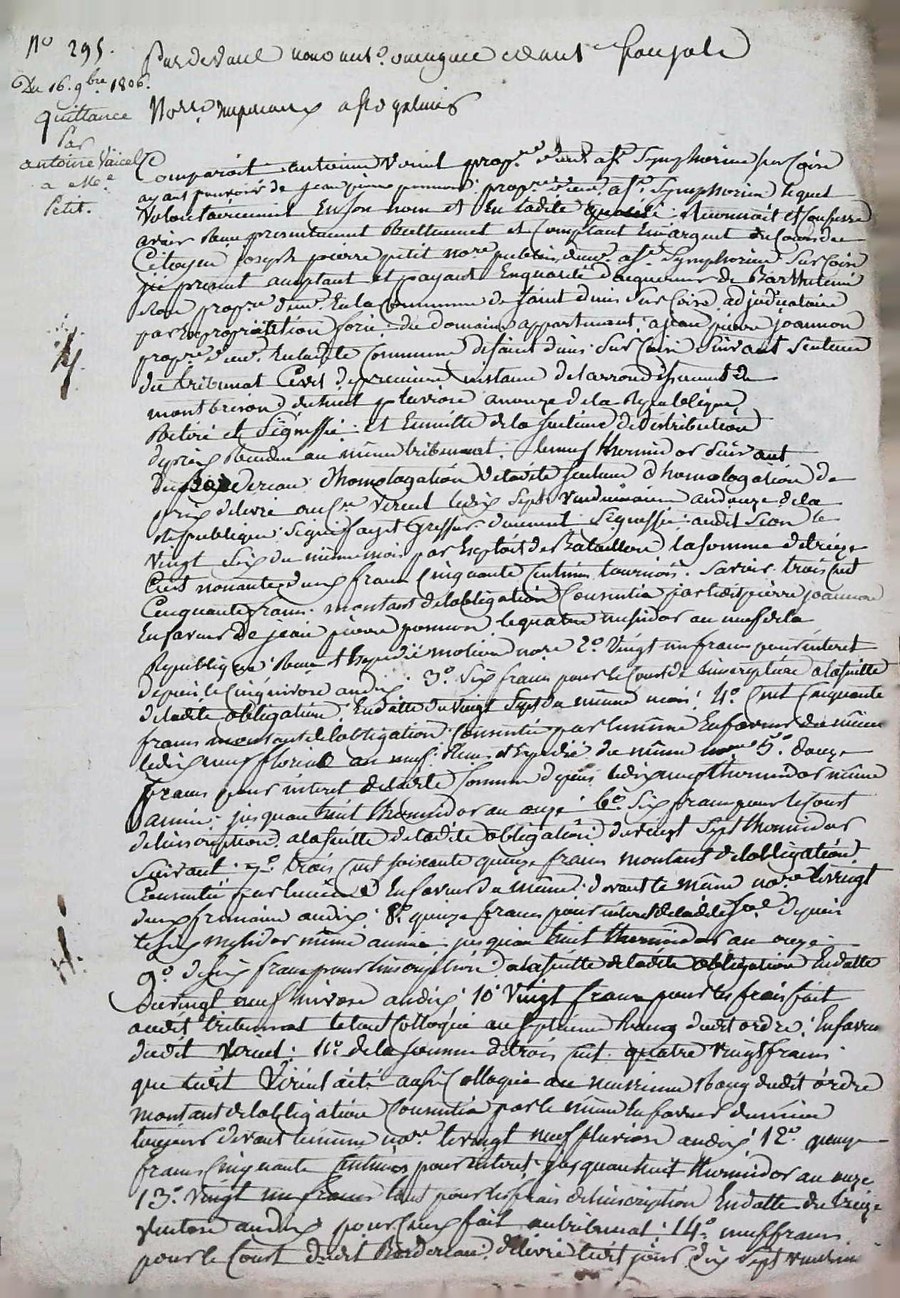 No 295.
Du 16. 9bre 1806.
quittance
Par
antoine
a Me
Petit.
Par devant nous
Nore a St galmier
Comparoit antoine propre a St Symphorien sur Coise
ayant pouvoir de jean pierre propre a St Symphorien lequel
Volontairement En son nom et En ladite qualité Reconnoit et Confesse
avoir Reçu présentement Réellement et Comptant En argent du Cours de
Citoyen joseph pierre petit nore public a St Symphorien sur Coise
ici present acceptant et payant En qualité d'acquereur de Barthelemi
propre en la Commune de Saint denis Sur Coise adjudicataire
par Expropriation forcée du domaine appartenant a jean pierre joannon
propre En ladite Commune de Saint denis Sur Coise Suivant Sentence
du tribunal Civil de premiere instance de l'arrondissement de
montbrison du huit pluviose an onze de la Republique
et Signiffié et Ensuitte de la Sentence de distribution
du prix Rendue au même tribunal le neuf thermidor Suivant
du Bordereau d'homologation de ladite Sentence d'homologation de
prix delivré le dix Sept Vendemiaire an douze de la
Republique Signé greffier Signiffié audit Sion le
Vingt Six du même mois par Exploit de Bataillon la Somme de treize
Cent nonante deux francs Cinquante Centimes tournois. Savoir trois Cent
Cinquante francs montant de l'obligation Consentie par ledit pierre joannon
En faveur de jean pierre le quatre messidor an neuf de la
Republique Reçue et Expediée nore 2o Vingt un francs pour interet
depuis le Cinq nivose an dix. 3o Six francs pour le Cout de inscription a la suitte
de ladite obligation En datte du vingt Sept du même mois 4o Cent Cinquante
francs montant de l'obligation Consentie par le même En faveur du même
le dix neuf floréal an neuf Reçue et Expediée du même nore 5o douze
francs pour interet de ladite Somme depuis le dix neuf thermidor même
année jusqu'au huit thermidor an onze 6o Six francs pour le Cout
de l'inscription a la suitte de ladite obligation du vingt Sept thermidor
Suivant 7o trois Cent soixante quinze francs montant de l'obligation
Consentie par le même En faveur du même devant le même nore le vingt
deux frimaire an dix 8o quinze francs pour interet de ladite depuis
le six messidor même année jusqu'au huit thermidor an onze
9o de Six francs pour l'inscription a la suitte de ladite obligation En datte
du vingt neuf nivose an dix 10o Vingt francs pour les frais fait
audit tribunal le tout Colloqué au Septieme Rang dudit ordre En faveur
dudit 11o de la Somme de trois Cent quatre vingt francs
que ledit a été aussi Colloqué au Rang dudit ordre
montant de l'obligation Consentie par le même En faveur du même
toujours devant le même nore le vingt neuf pluviose an dix 12o quinze
francs Cinquante Centimes pour interet jusqu'au huit thermidor an onze
13o Vingt un francs tant pour les frais de l'inscription En datte du treize
Ventose an dix pour Ceux fait au tribunal 14o neuf francs
pour le Cout dudit Bordereau délivré ledit jour dix Sept